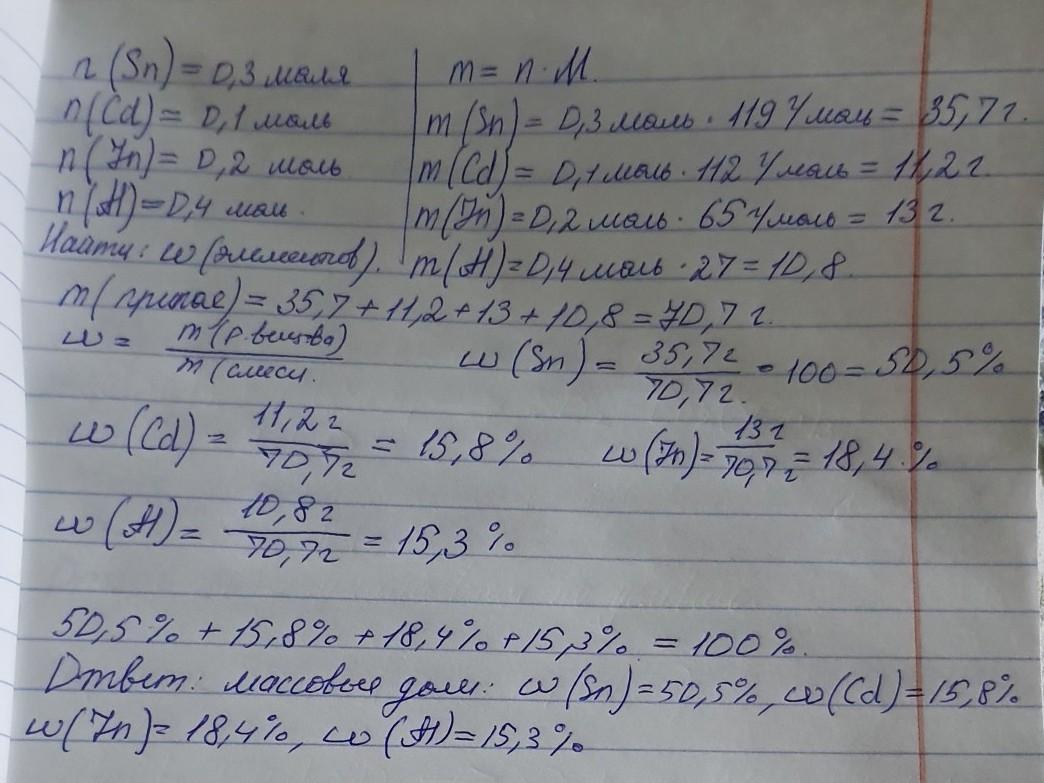 n(Sn) = 0,3 моля | m = n · M.
n(Cd) = 0,1 моль | m(Sn) = 0,3 моль · 119 г/моль = 35,7 г.
n(Zn) = 0,2 моль | m(Cd) = 0,1 моль · 112 г/моль = 11,2 г.
n(Al) = 0,4 моль. | m(Zn) = 0,2 моль · 65 г/моль = 13 г.
Найти: w(элементов). m(Al) = 0,4 моль · 27 = 10,8.
m(припае) = 35,7 + 11,2 + 13 + 10,8 = 70,7 г.
w = m(р.вещтва) / m(смеси. w(Sn) = 35,7 г / 70,7 г. · 100 = 50,5 %
w(Cd) = 11,2 г / 70,7 г = 15,8 % w(Zn) = 13 г / 70,7 г = 18,4 %
w(Al) = 10,8 г / 70,7 г = 15,3 %
50,5 % + 15,8 % + 18,4 % + 15,3 % = 100 %.
Ответ: массовые доли: w(Sn) = 50,5 %, w(Cd) = 15,8 %
w(Zn) = 18,4 %, w(Al) = 15,3 %